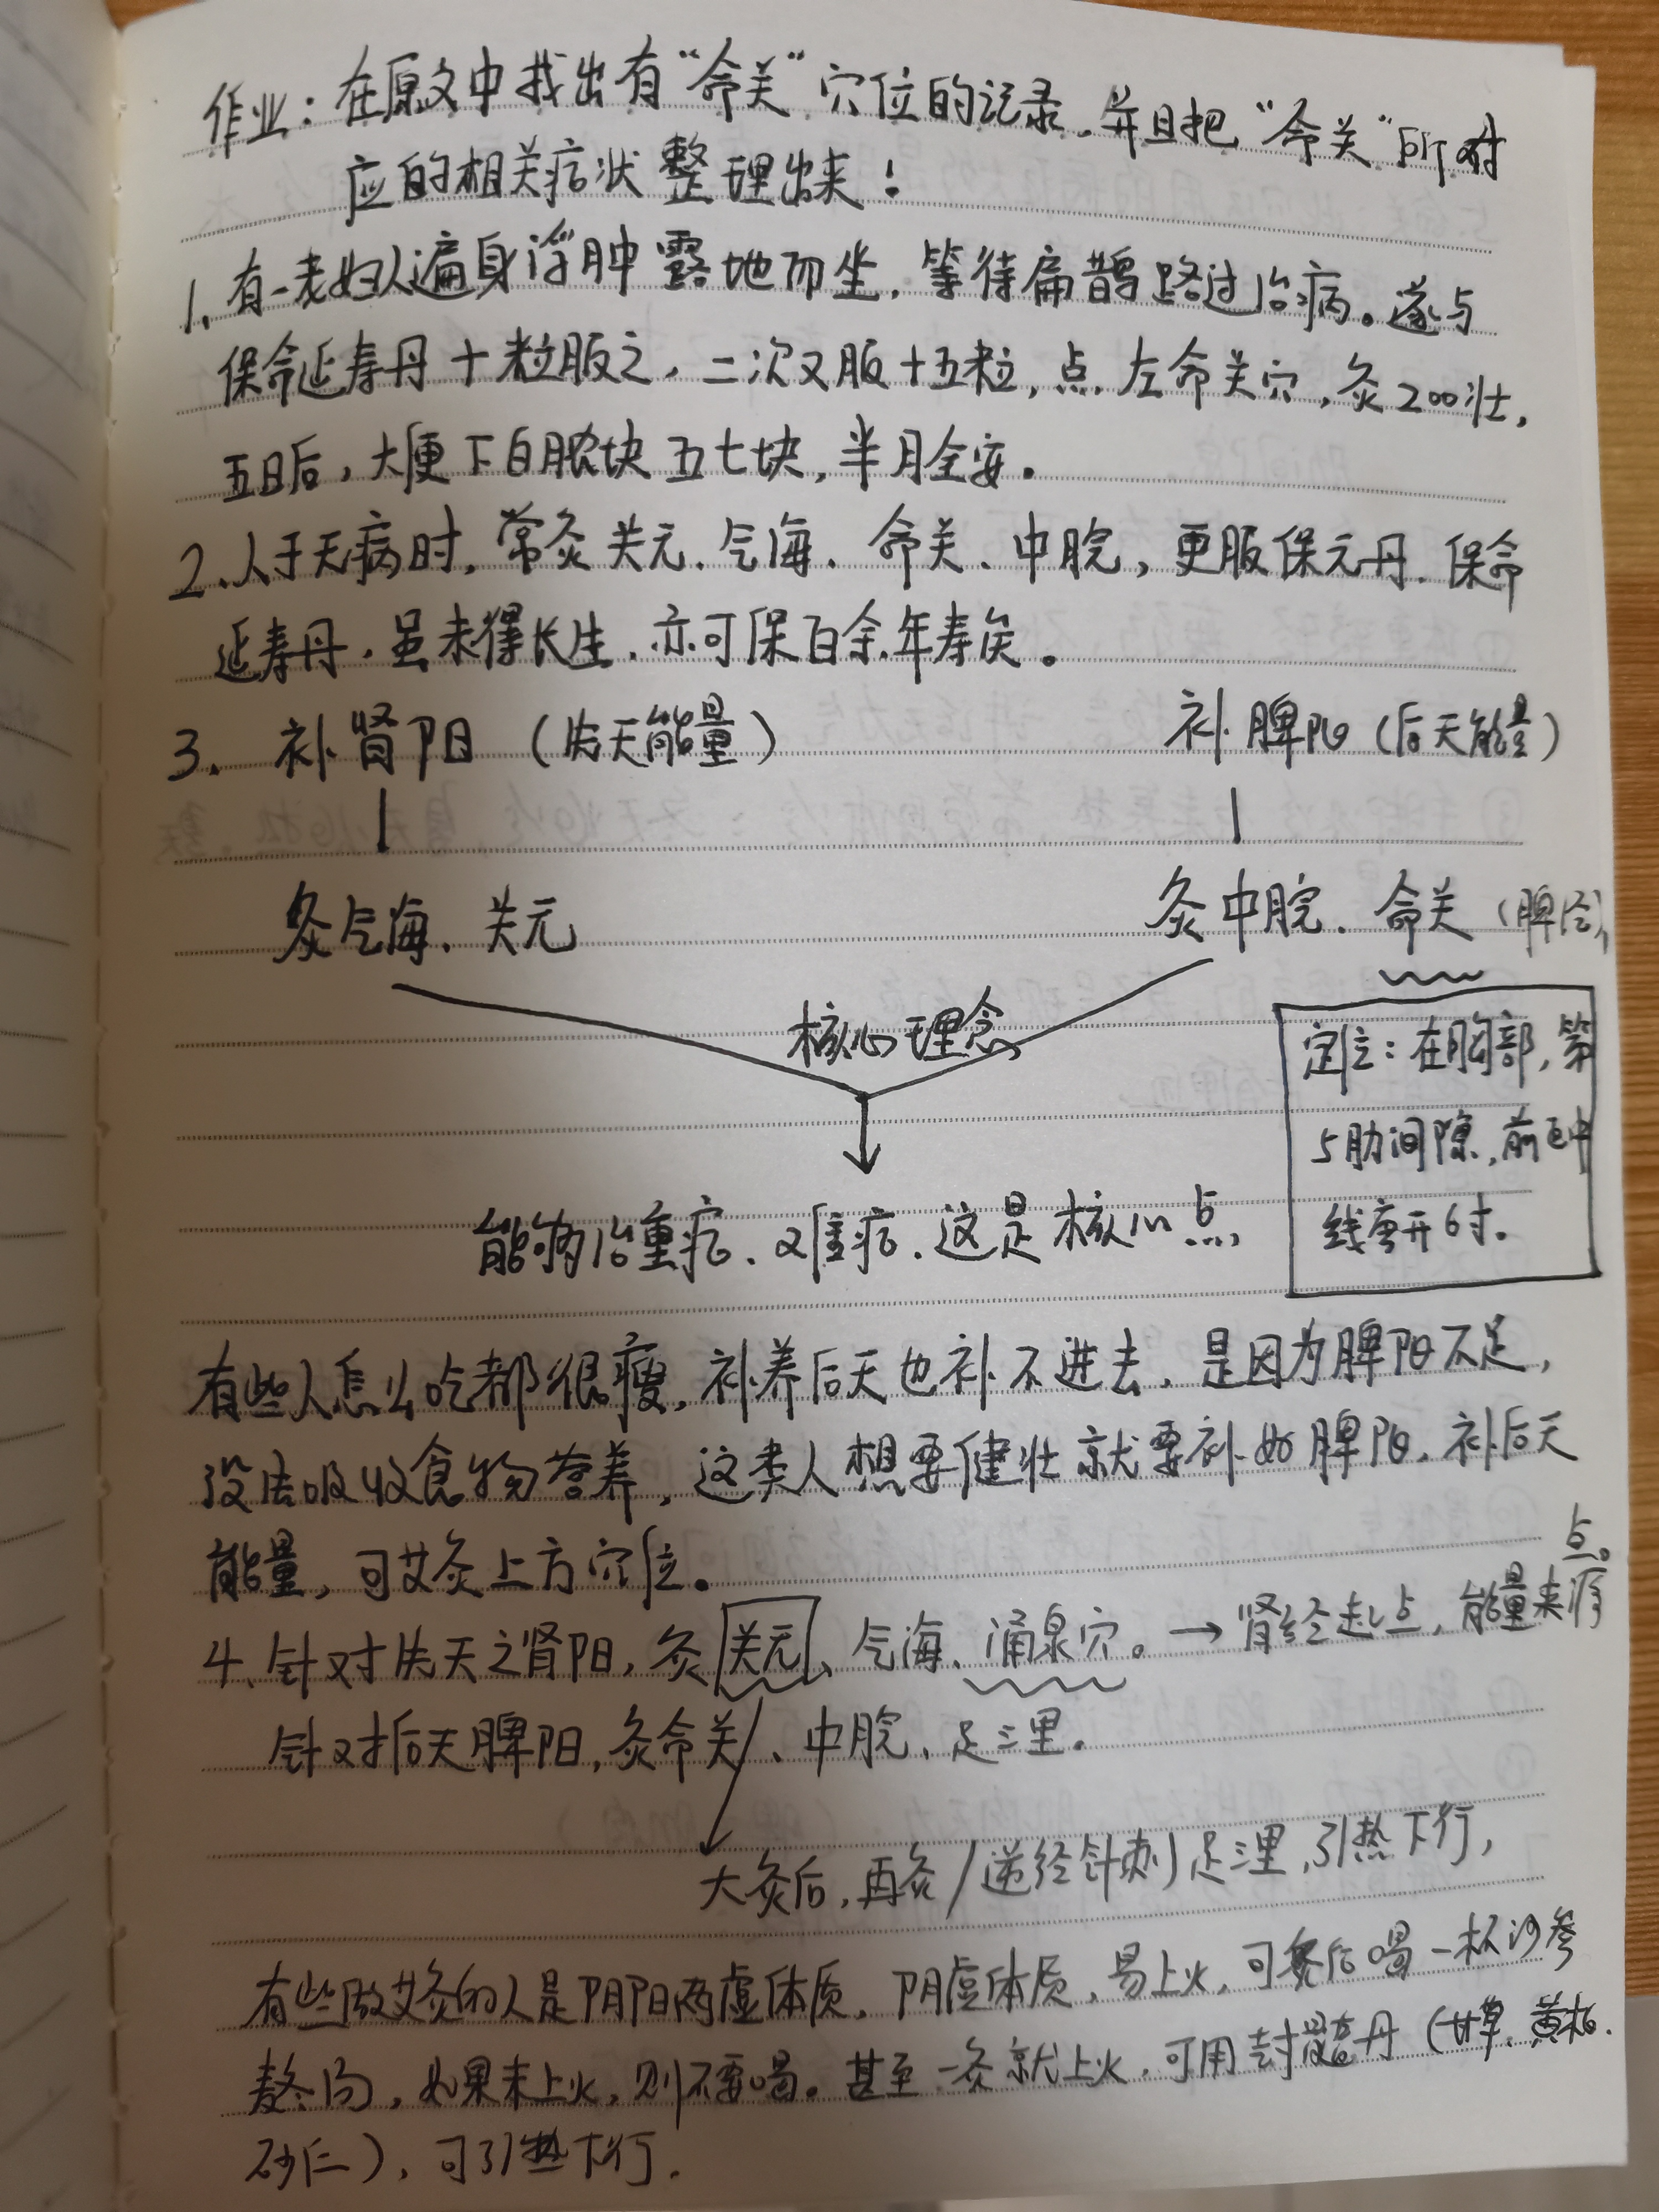 作业：在原文中找出有“命关”穴位的记录，并且把“命关”所对
应的相关症状整理出来！
1、有一老妇人遍身浮肿露地而坐，等待扁鹊路过治病。遂与
保命延寿丹十粒服之，二次又服十五粒，点左命关穴，灸200壮，
五日后，大便下白脓块五七块，半月全安。
2、人于无病时，常灸关元、气海、命关、中脘，更服保元丹、保命
延寿丹，虽未得长生，亦可保百余年寿矣。
3、补肾阳（先天能量） 补脾阳（后天能量）
灸气海、关元 灸中脘、命关（脾经）
核心理念
定位：在胸部，第
5肋间隙，前正中
线旁开6寸。
能够治重症、难症，这是核心点
有些人怎么吃都很瘦，补养后天也补不进去，是因为脾阳不足，
没法吸收食物营养，这类人想要健壮就要补好脾阳，补后天
能量，可艾灸上方穴位。
4、针对先天之肾阳，灸关元、气海、涌泉穴。→肾经起点，能量来源
点。
针对后天脾阳，灸命关、中脘、足三里。
大灸后，再灸/逆经针刺足三里，引热下行，
有些做艾灸的人是阴阳两虚体质，阴虚体质，易上火，可灸后喝一杯沙参
麦冬汤，如果未上火，则不要喝。甚至一灸就上火，可用封髓丹（甘草、黄柏、
砂仁），可引热下行。